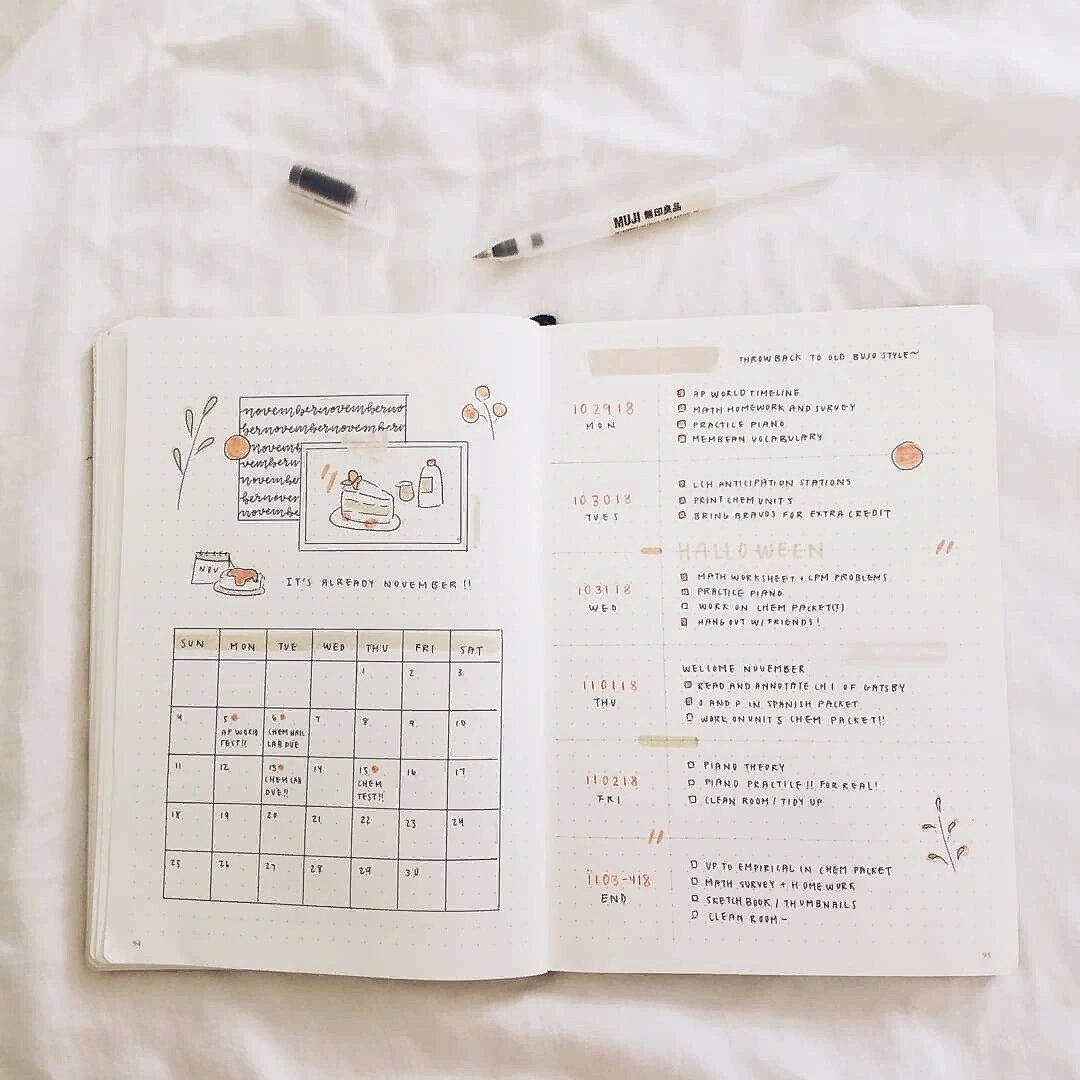 MUJI 無印良品
novembernovembernovembernno
bernovembernovembernovem
novem
vembern
novem
bernovem
novembe
NOV
IT'S ALREADY NOVEMBER !!
SUN MON TUE WED THU FRI SAT
1 2 3
4 5 6 7 8 9 10
AP WORLD TEST!!
CHEM NAIL LAB DUE
11 12 13 14 15 16 17
CHEM LAB DUE!!
CHEM TEST!!
18 19 20 21 22 23 24
25 26 27 28 29 30
94
THROWBACK TO OLD BUJO STYLE~
102918
MON
AP WORLD TIMELINE
MATH HOMEWORK AND SURVEY
PRACTICE PIANO
MEMBEAN VOCABULARY
103018
TUES
LCH ANTICIPATION STATIONS
PRINT CHEM UNIT 5
BRING BRAVOS FOR EXTRA CREDIT
HALLOWEEN
103118
WED
MATH WORKSHEET + CPM PROBLEMS
PRACTICE PIANO
WORK ON CHEM PACKET(?)
HANG OUT W/ FRIENDS!
WELCOME NOVEMBER
110118
THU
READ AND ANNOTATE CH 1 OF GATSBY
O AND P IN SPANISH PACKET
WORK ON UNIT 5 CHEM PACKET!!
110218
FRI
PIANO THEORY
PIANO PRACTICE!! FOR REAL!
CLEAN ROOM / TIDY UP
1103-418
END
UP TO EMPIRICAL IN CHEM PACKET
MATH SURVEY + HOMEWORK
SKETCHBOOK / THUMBNAILS
CLEAN ROOM~
95